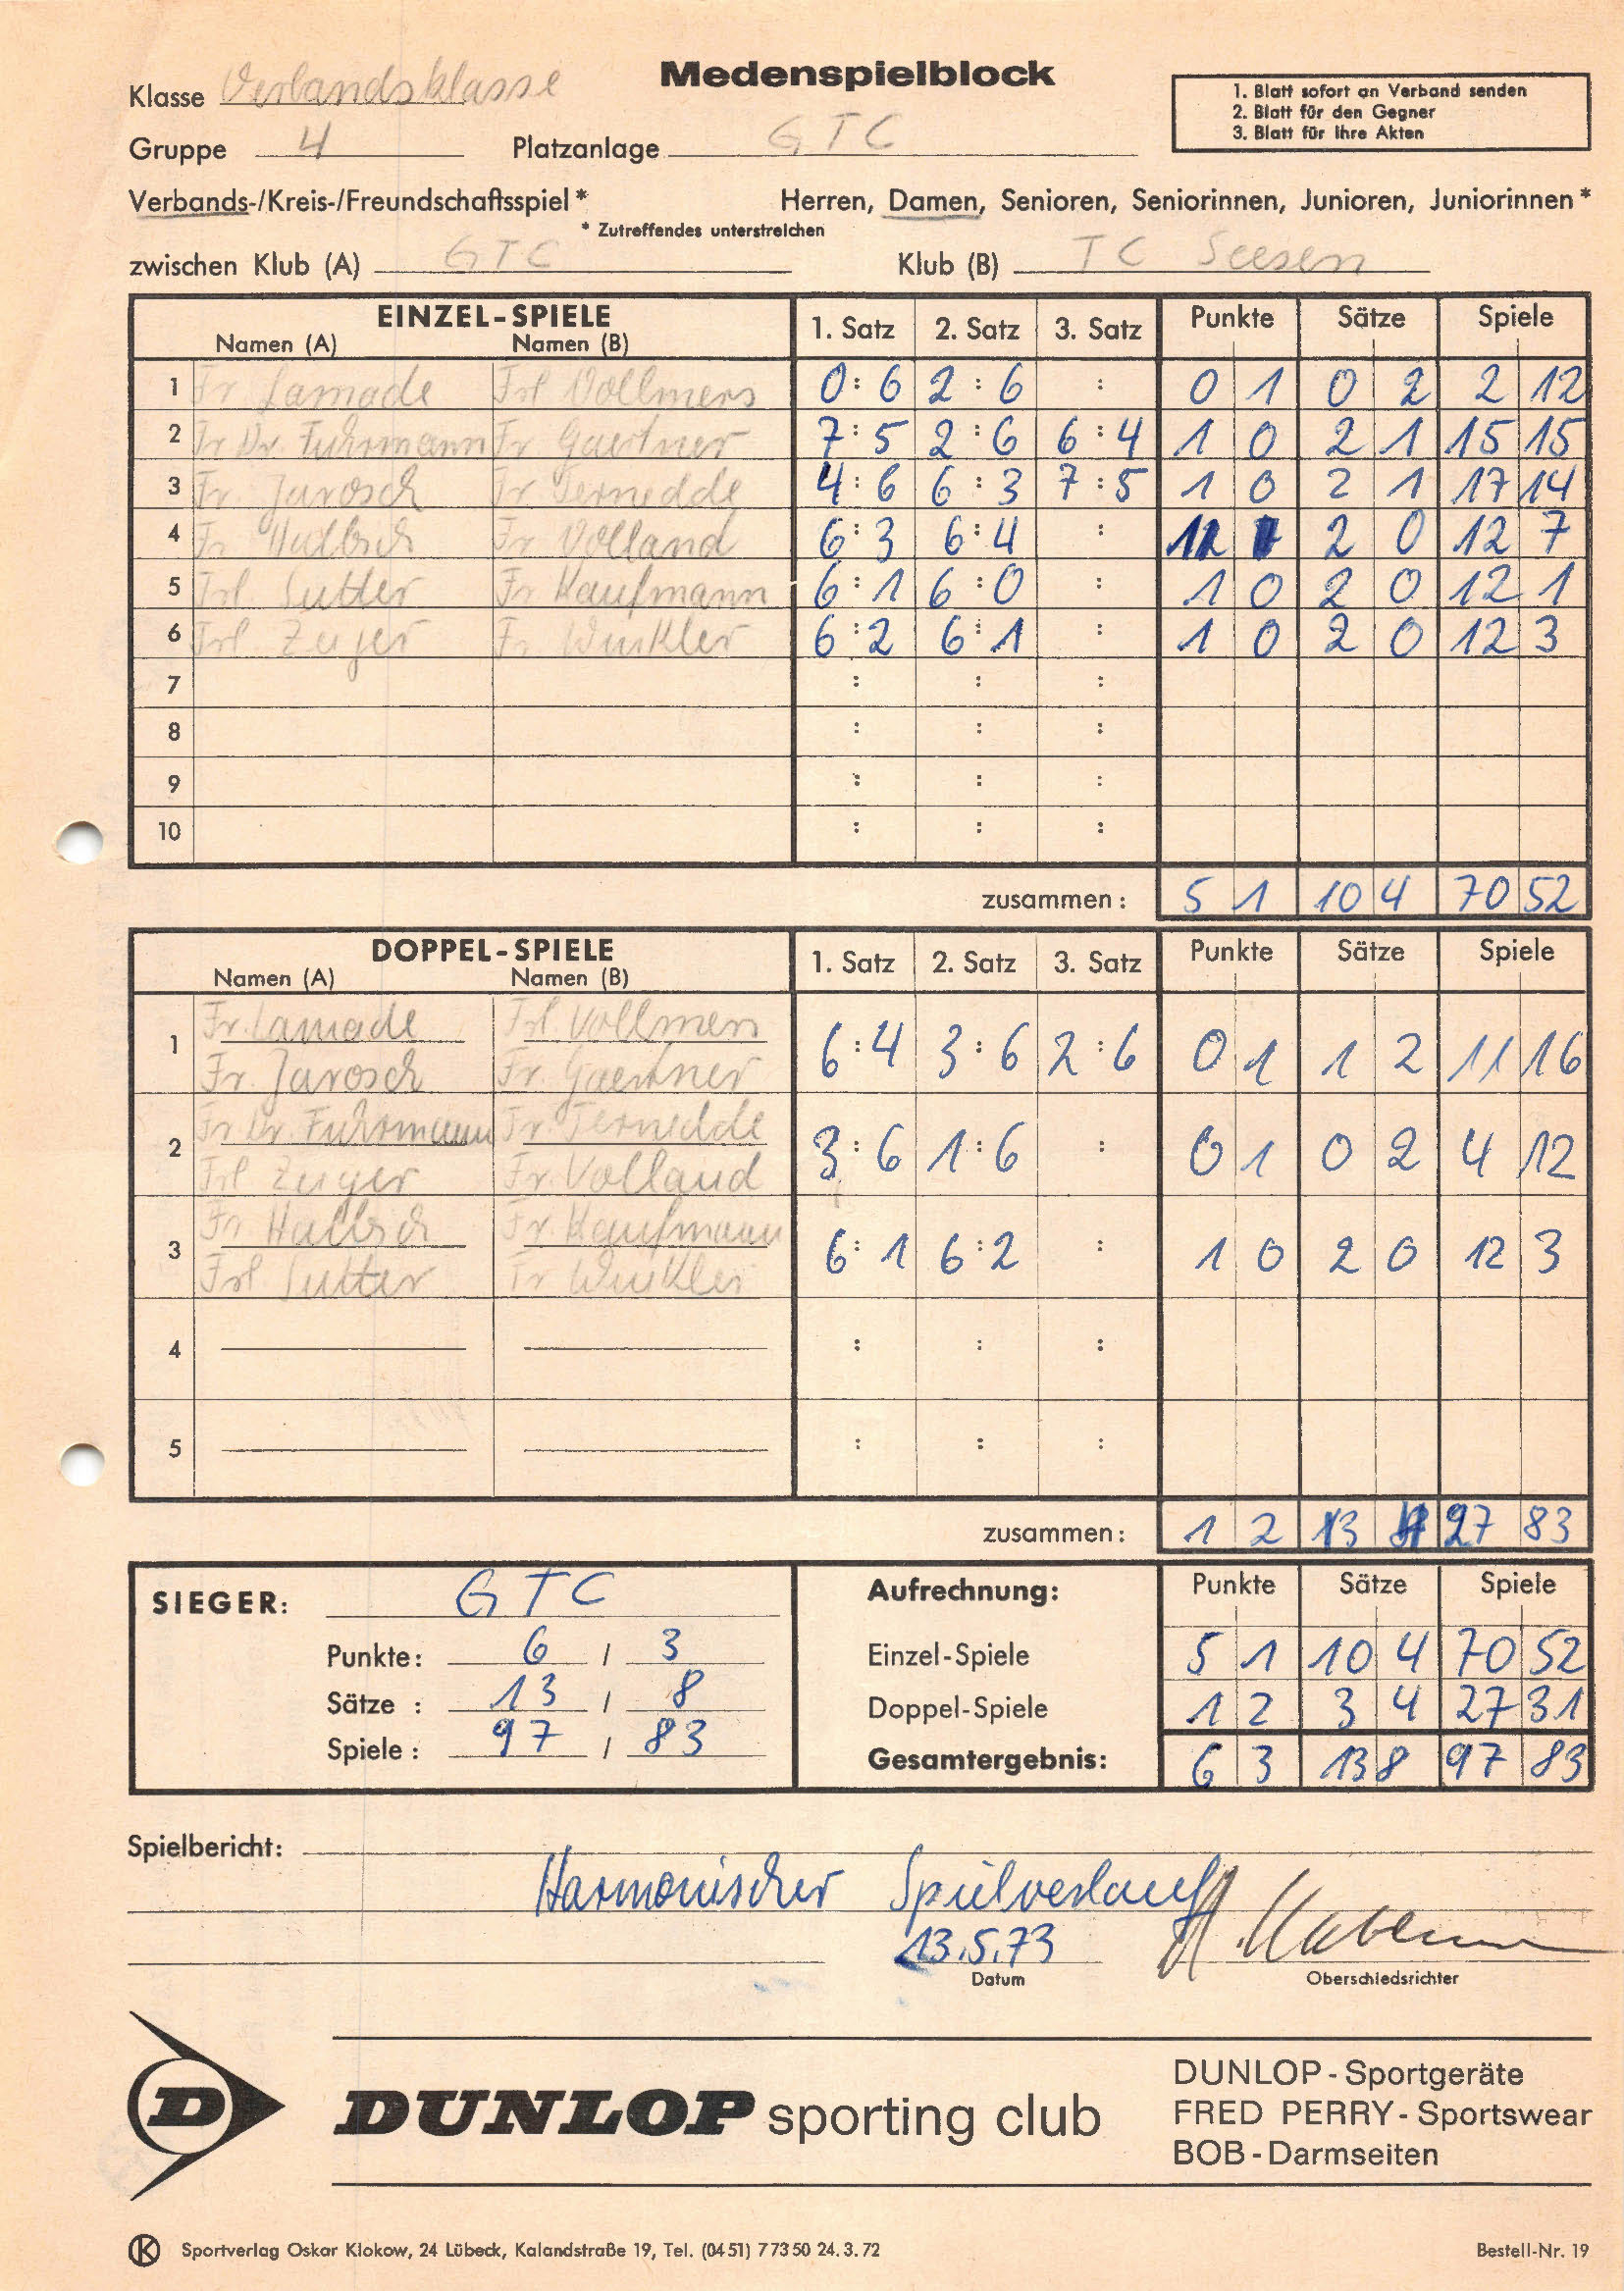 Medenspielblock
Klasse Verbandsklasse
1. Blatt sofort an Verband senden
2. Blatt für den Gegner
3. Blatt für Ihre Akten
Gruppe 4 Platzanlage GTC
Verbands-/Kreis-/Freundschaftsspiel* Herren, Damen, Senioren, Seniorinnen, Junioren, Juniorinnen*
* Zutreffendes unterstreichen
zwischen Klub (A) GTC Klub (B) TC Seesen
EINZEL-SPIELE 1. Satz 2. Satz 3. Satz Punkte Sätze Spiele
Namen (A) Namen (B)
1 Fr Lamade Frl Vollmers 0:6 2:6 : 0 1 0 2 2 12
2 Fr Dr. Fuhrmann Fr Gaertner 7:5 2:6 6:4 1 0 2 1 15 15
3 Fr Jarosch Fr Ternedde 4:6 6:3 7:5 1 0 2 1 17 14
4 Fr Fr Volland 6:3 6:4 : 2 0 12 7
5 Frl. Sutter Fr Kaufmann 6:1 6:0 : 1 0 2 0 12 1
6 Frl. Zeiger Fr Winkler 6:2 6:1 : 1 0 2 0 12 3
7 : : :
8 : : :
9 : : :
10 : : :
zusammen: 5 1 10 4 70 52
DOPPEL-SPIELE 1. Satz 2. Satz 3. Satz Punkte Sätze Spiele
Namen (A) Namen (B)
Fr. Lamade Frl. Vollmers
1 6:4 3:6 2:6 0 1 1 2 11 16
Fr. Jarosch Fr. Gaertner
Fr Dr. Fuhrmann Fr. Ternedde
2 3:6 1:6 : 0 1 0 2 4 12
Frl Zeiger Fr. Volland
Fr. Fr. Kaufmann
3 6:1 6:2 : 1 0 2 0 12 3
Frl Sutter Fr Winkler
4 : : :
5 : : :
zusammen: 1 2 27 83
SIEGER: GTC Aufrechnung: Punkte Sätze Spiele
Punkte: 6 / 3 Einzel-Spiele 5 1 10 4 70 52
Sätze : 13 / 8 Doppel-Spiele 1 2 3 4 27 31
Spiele : 97 / 83 Gesamtergebnis: 6 3 13 8 97 83
Spielbericht:
Harmonischer Spielverlauf
13.5.73
Datum Oberschiedsrichter
D DUNLOP sporting club
DUNLOP - Sportgeräte
FRED PERRY - Sportswear
BOB - Darmseiten
K Sportverlag Oskar Klokow, 24 Lübeck, Kalandstraße 19, Tel. (04 51) 7 73 50 24. 3. 72 Bestell-Nr. 19